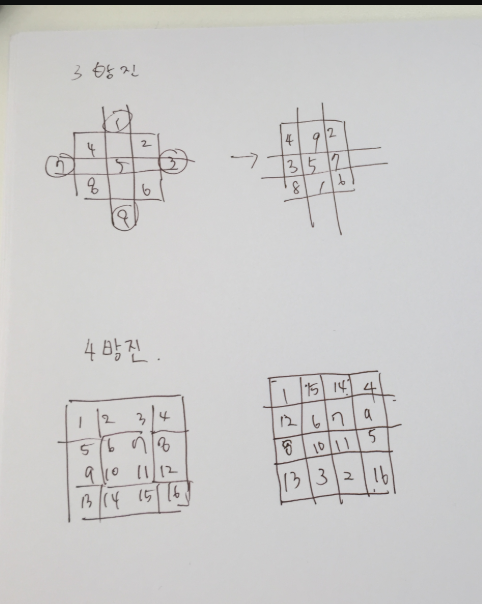 3 방진
1
4 2
7 5 3
8 6
9
→
4 9 2
3 5 7
8 1 6
4 방진.
1 2 3 4
5 6 7 8
9 10 11 12
13 14 15 16
1 15 14 4
12 6 7 9
8 10 11 5
13 3 2 16